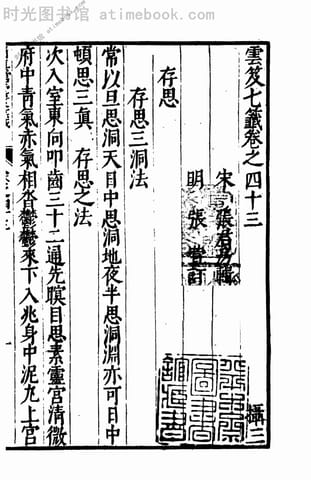 时光图书馆 www.atimebook.com
雲笈七籤卷之四十三
攝三
宋 張君房輯
明 張萱訂
存思
存思三洞法
常以旦思洞天日中思洞地夜半思洞淵亦可日中
頓思三眞 存思之法
次入室東向叩齒三十二通先瞑目思素靈宫清微
府中青氣赤氣相沓鬱鬱來下入兆身中泥丸上宫
时光图书馆 - atimebook.com